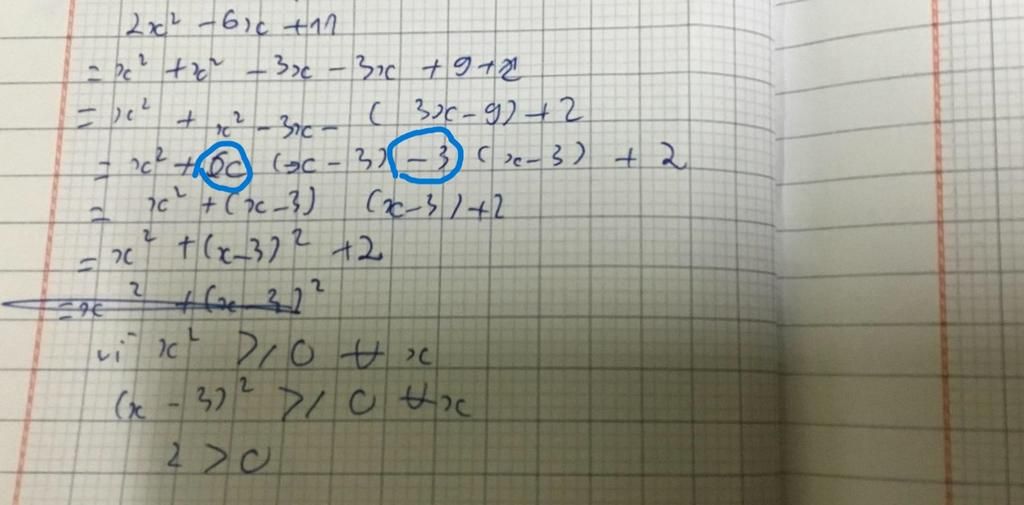 2x² - 6x + 11
= x² + x² - 3x - 3x + 9 + 2
= x² + x² - 3x - ( 3x - 9) + 2
= x² + x (x - 3) - 3 (x - 3) + 2
= x² + (x - 3) (x - 3) + 2
= x² + (x - 3)² + 2
= x² + (x - 3)²
vì x² ≥ 0 ∀ x
(x - 3)² ≥ 0 ∀ x
2 > 0